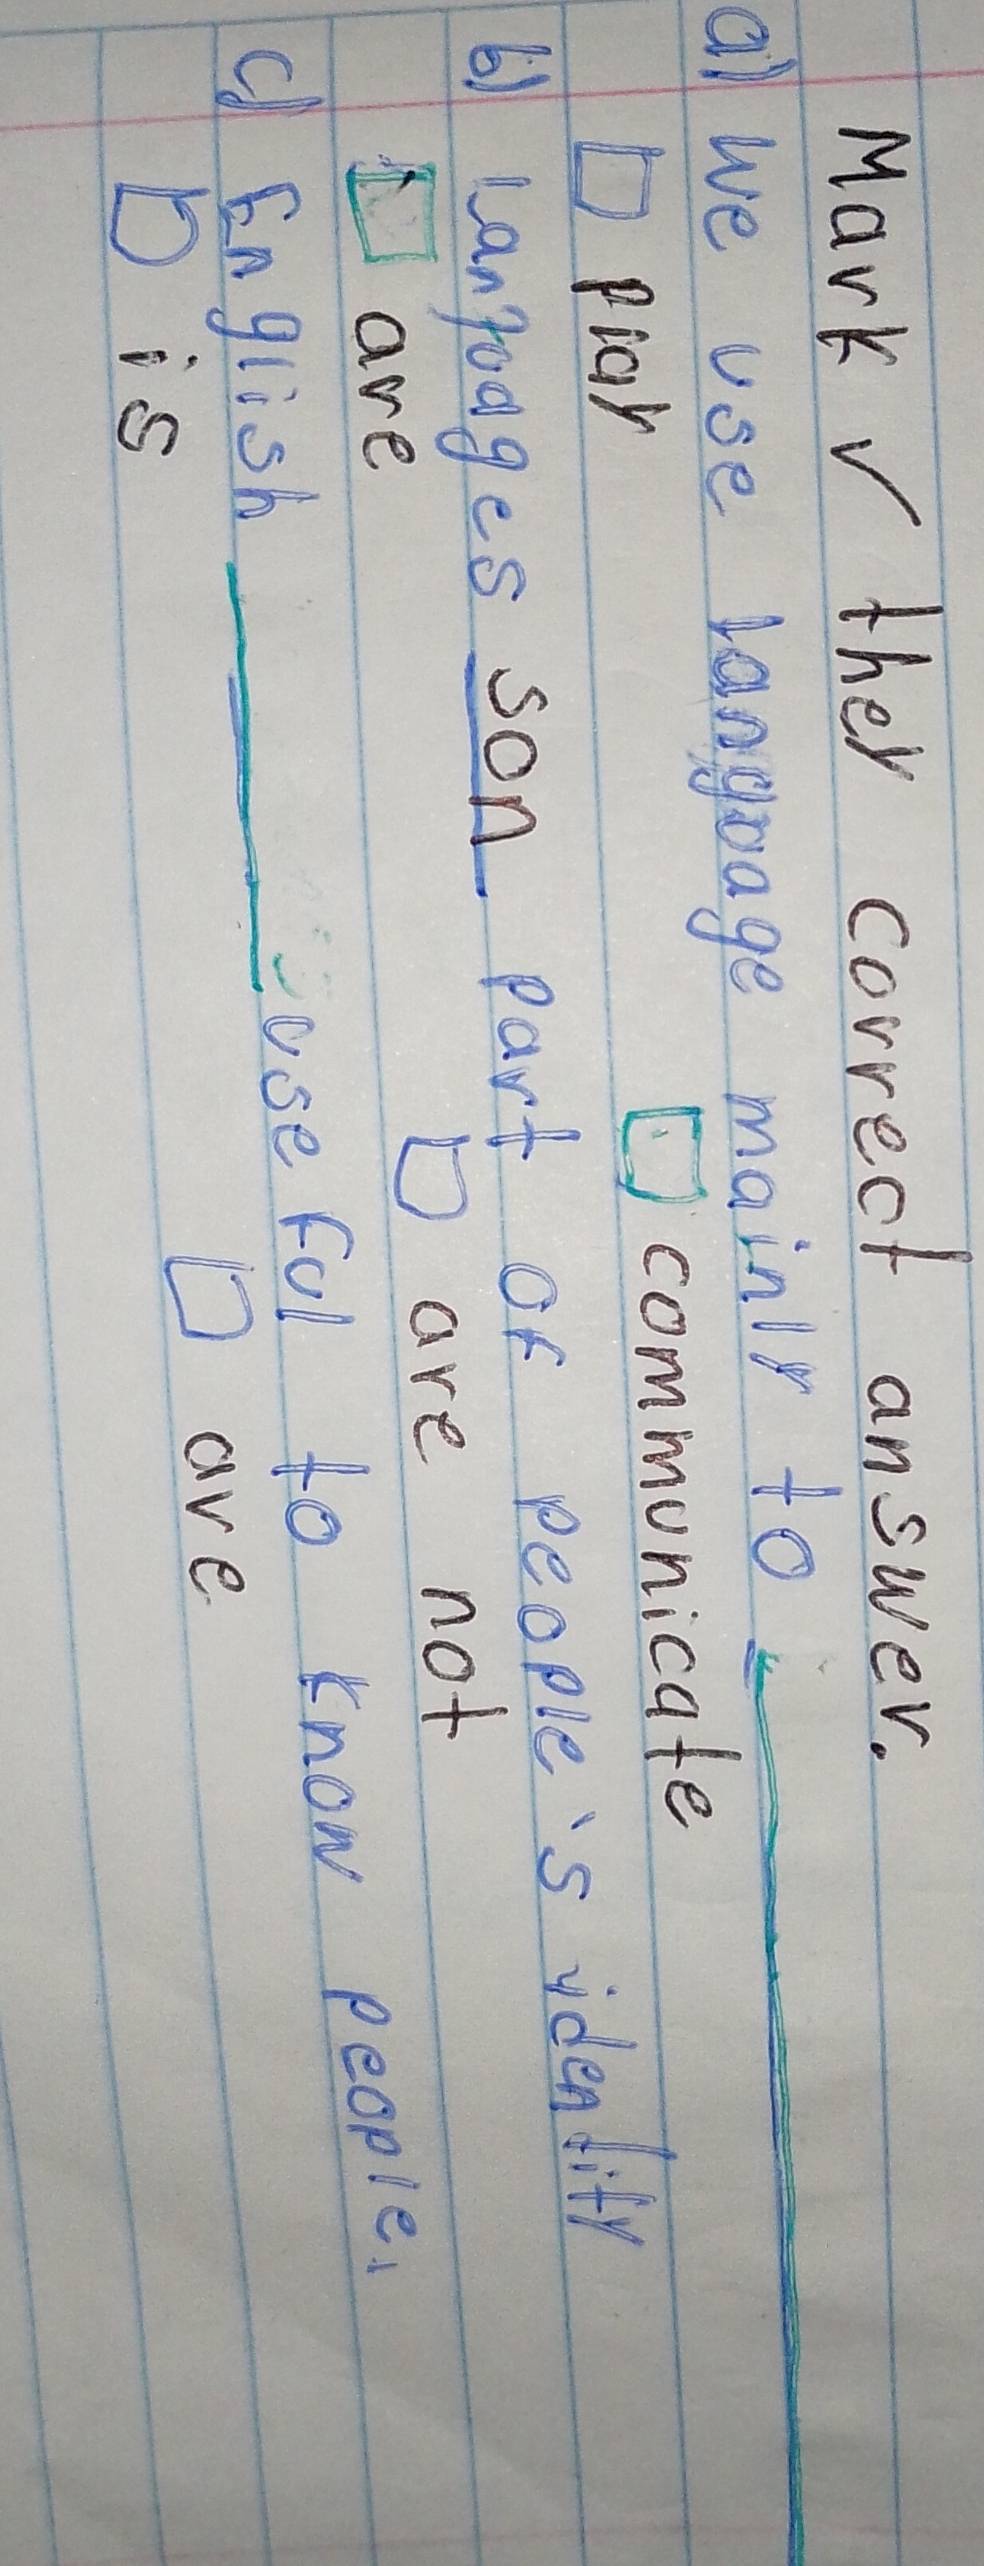 Mark ✓ they correct answer.
a) We use langoage mainly to ____
□ play □ communicate
b) Langoages son part of people's identity
□ are □ are not
c) English ____ useful to know people.
□ is □ are